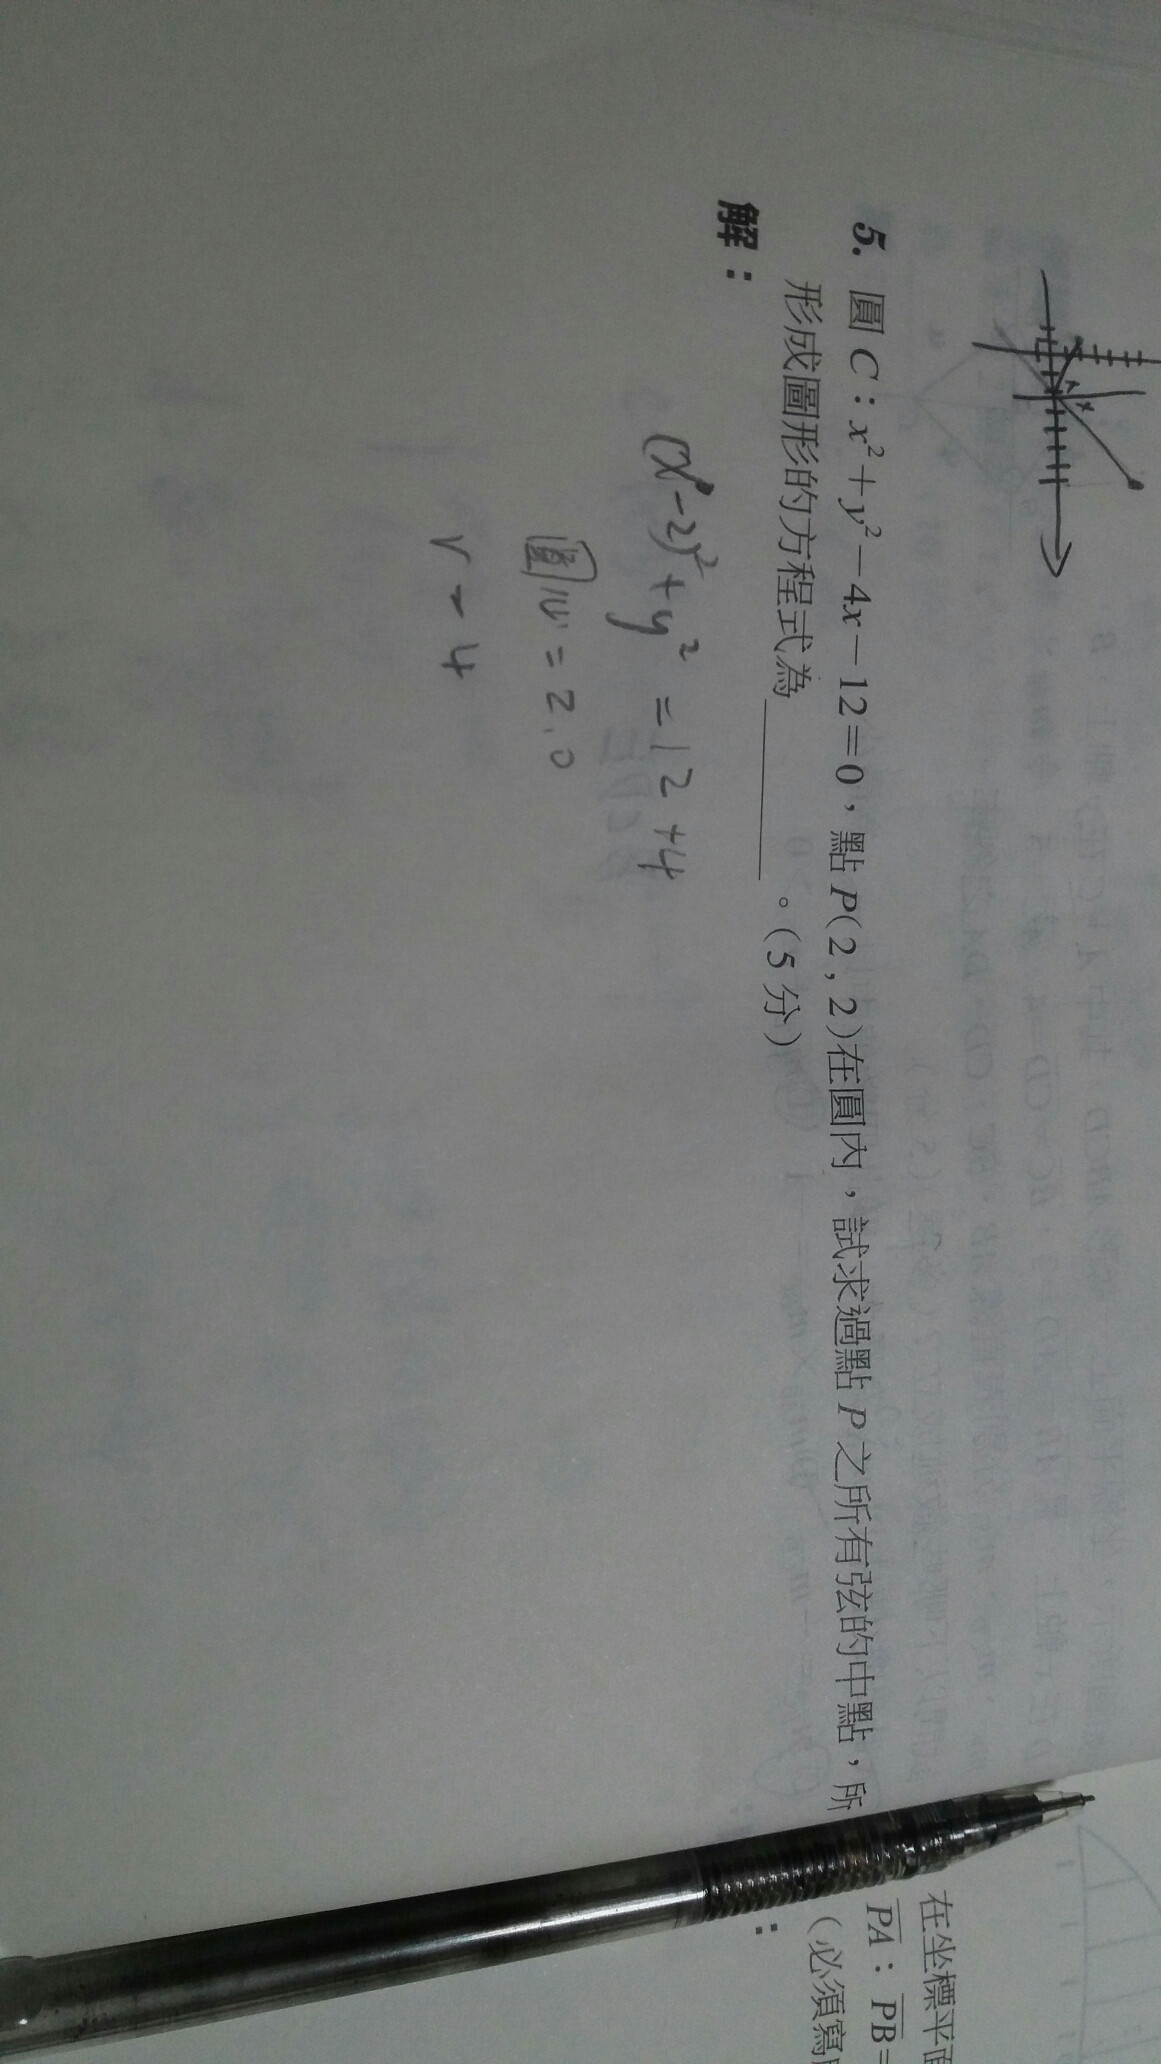 5. 圓 C：x²＋y²－4x－12＝0，點 P(2 , 2)在圓內，試求過點 P 之所有弦的中點，所
形成圖形的方程式為＿＿＿＿＿。(5 分)
解：
(x-2)²+y²=12+4
圓心=2,0
r=4
在坐標平面
PA：PB＝
(必須寫
：